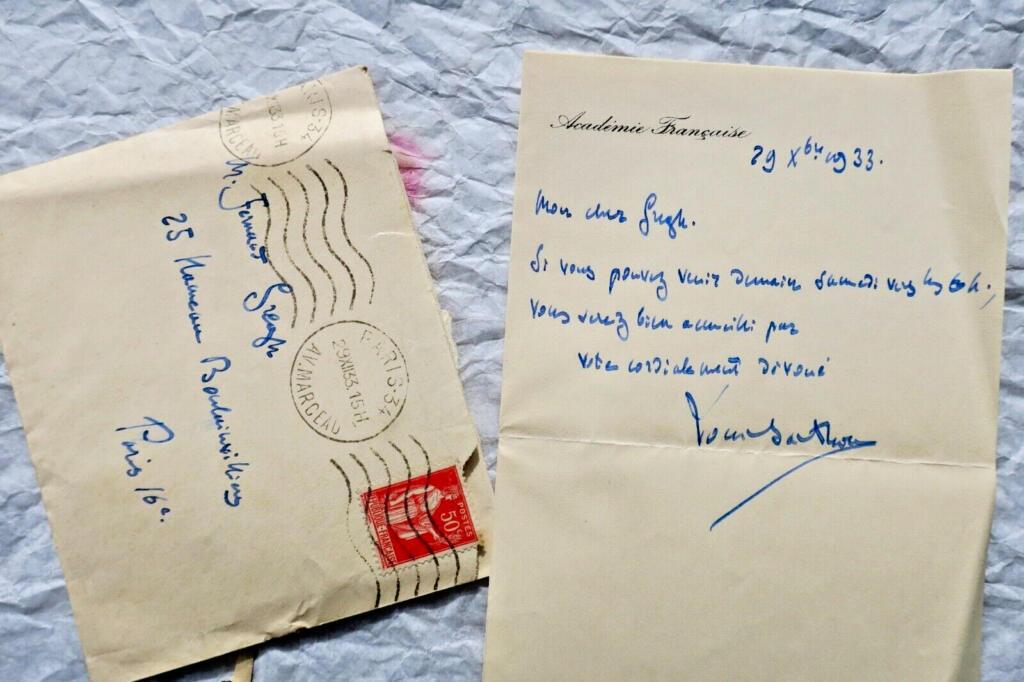 M. Fernand Gregh
25 Hameau Boulainvilliers
Paris 16e.
PARIS-34
29 XII 33.15H
AV. MARCEAU
PARIS-34
33.15H
MARCEAU
POSTES
50c
REPUBLIQUE-FRANÇAISE
Académie Française
29 Xbre 1933.
Mon cher Gregh.
Si vous pouvez venir demain samedi vers les
vous serez bien accueilli par
votre cordialement dévoué
Louis Barthou